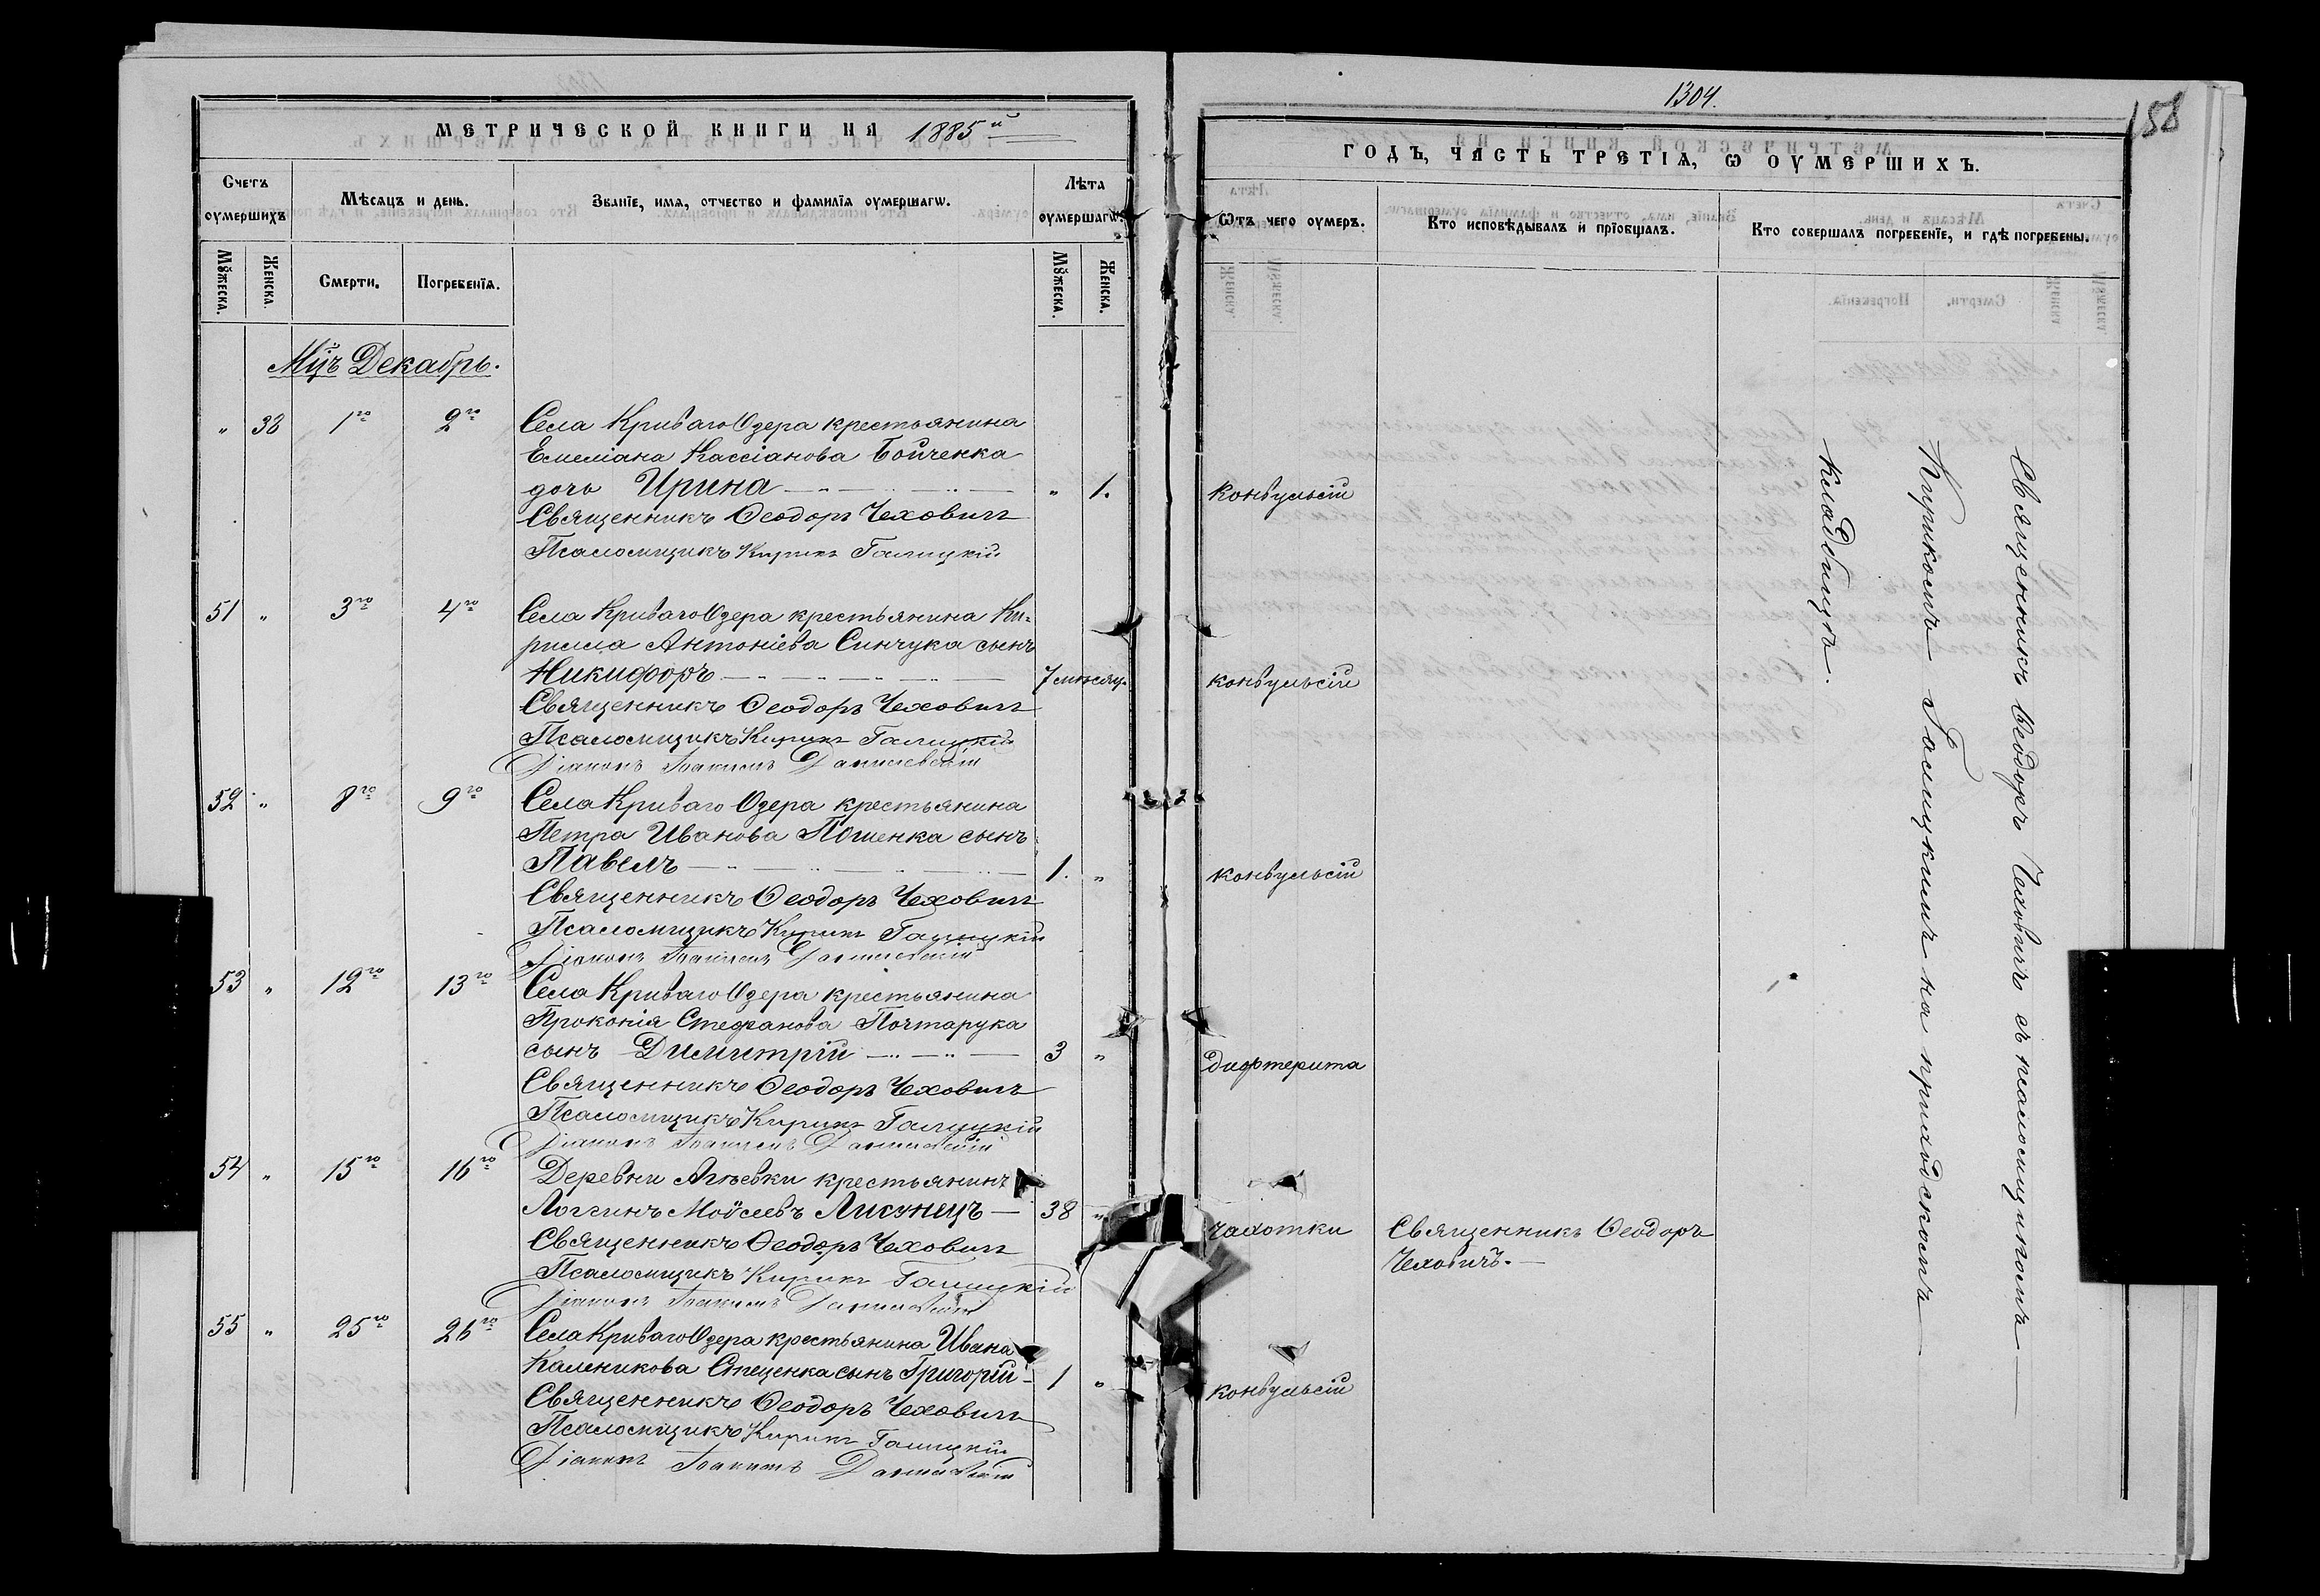 МЕТРИЧЕСКОЙ КНИГИ НА 1885й
Счетъ оумершихъ
Мѣсяцъ и день.
Званїе, имя, отчество и фамилїя оумершагѡ.
Лѣта оумершагѡ.
Мꙋжеска.
Женска.
Смерти.
Погребенїя.
Мꙋжеска.
Женска.
Мцъ Декабрь.
" 38 1го 2го Села Криваго Озера крестьянина
Емеліана Кассіанова Бойченка
дочь Ирина " 1.
Священникъ Ѳеодоръ Чеховичъ
Псаломщикъ Кирикъ Галицкій
51 " 3го 4го Села Криваго Озера крестьянина Ки-
рилла Антоніева Синчука сынъ
Никифоръ 7 мѣсяц.
Священникъ Ѳеодоръ Чеховичъ
Псаломщикъ Кирикъ Галицкій
Діаконъ Іоакимъ Данилевскій
52 " 8го 9го Села Криваго Озера крестьянина
Петра Иванова сынъ
Павелъ 1. "
Священникъ Ѳеодоръ Чеховичъ
Псаломщикъ Кирикъ Галицкій
Діаконъ Іоакимъ Данилевскій
53 " 12го 13го Села Криваго Озера крестьянина
Прокопія Стефанова Почтарука
сынъ Димитрій 3 "
Священникъ Ѳеодоръ Чеховичъ
Псаломщикъ Кирикъ Галицкій
Діаконъ Іоакимъ Данилевскій
54 " 15го 16го Деревни крестьянинъ
Логгинъ Моѵсеевъ Лисунецъ 38 "
Священникъ Ѳеодоръ Чеховичъ
Псаломщикъ Кирикъ Галицкій
Діаконъ Іоакимъ Данилевскій
55 " 25го 26го Села Криваго Озера крестьянина Ивана
Каленикова Стеценка сынъ Григорій 1 "
Священникъ Ѳеодоръ Чеховичъ
Псаломщикъ Кирикъ Галицкій
Діаконъ Іоакимъ Данилевскій
1304.
158
ГОДЪ, ЧАСТЬ ТРЕТІѦ, Ѡ ОУМЕРШИХЪ.
Ѿтъ чего оумеръ.
Кто исповѣдывалъ и прїобщалъ.
Кто совершалъ погребенїе, и гдѣ погребены.
конвульсій
конвульсій
конвульсій
дифтерита
чахотки Священникъ Ѳеодоръ
Чеховичъ.
конвульсій
Священникъ Ѳеодоръ Чеховичъ съ псаломщикомъ
Кирикомъ Галицкимъ на приходскомъ
кладбищѣ.